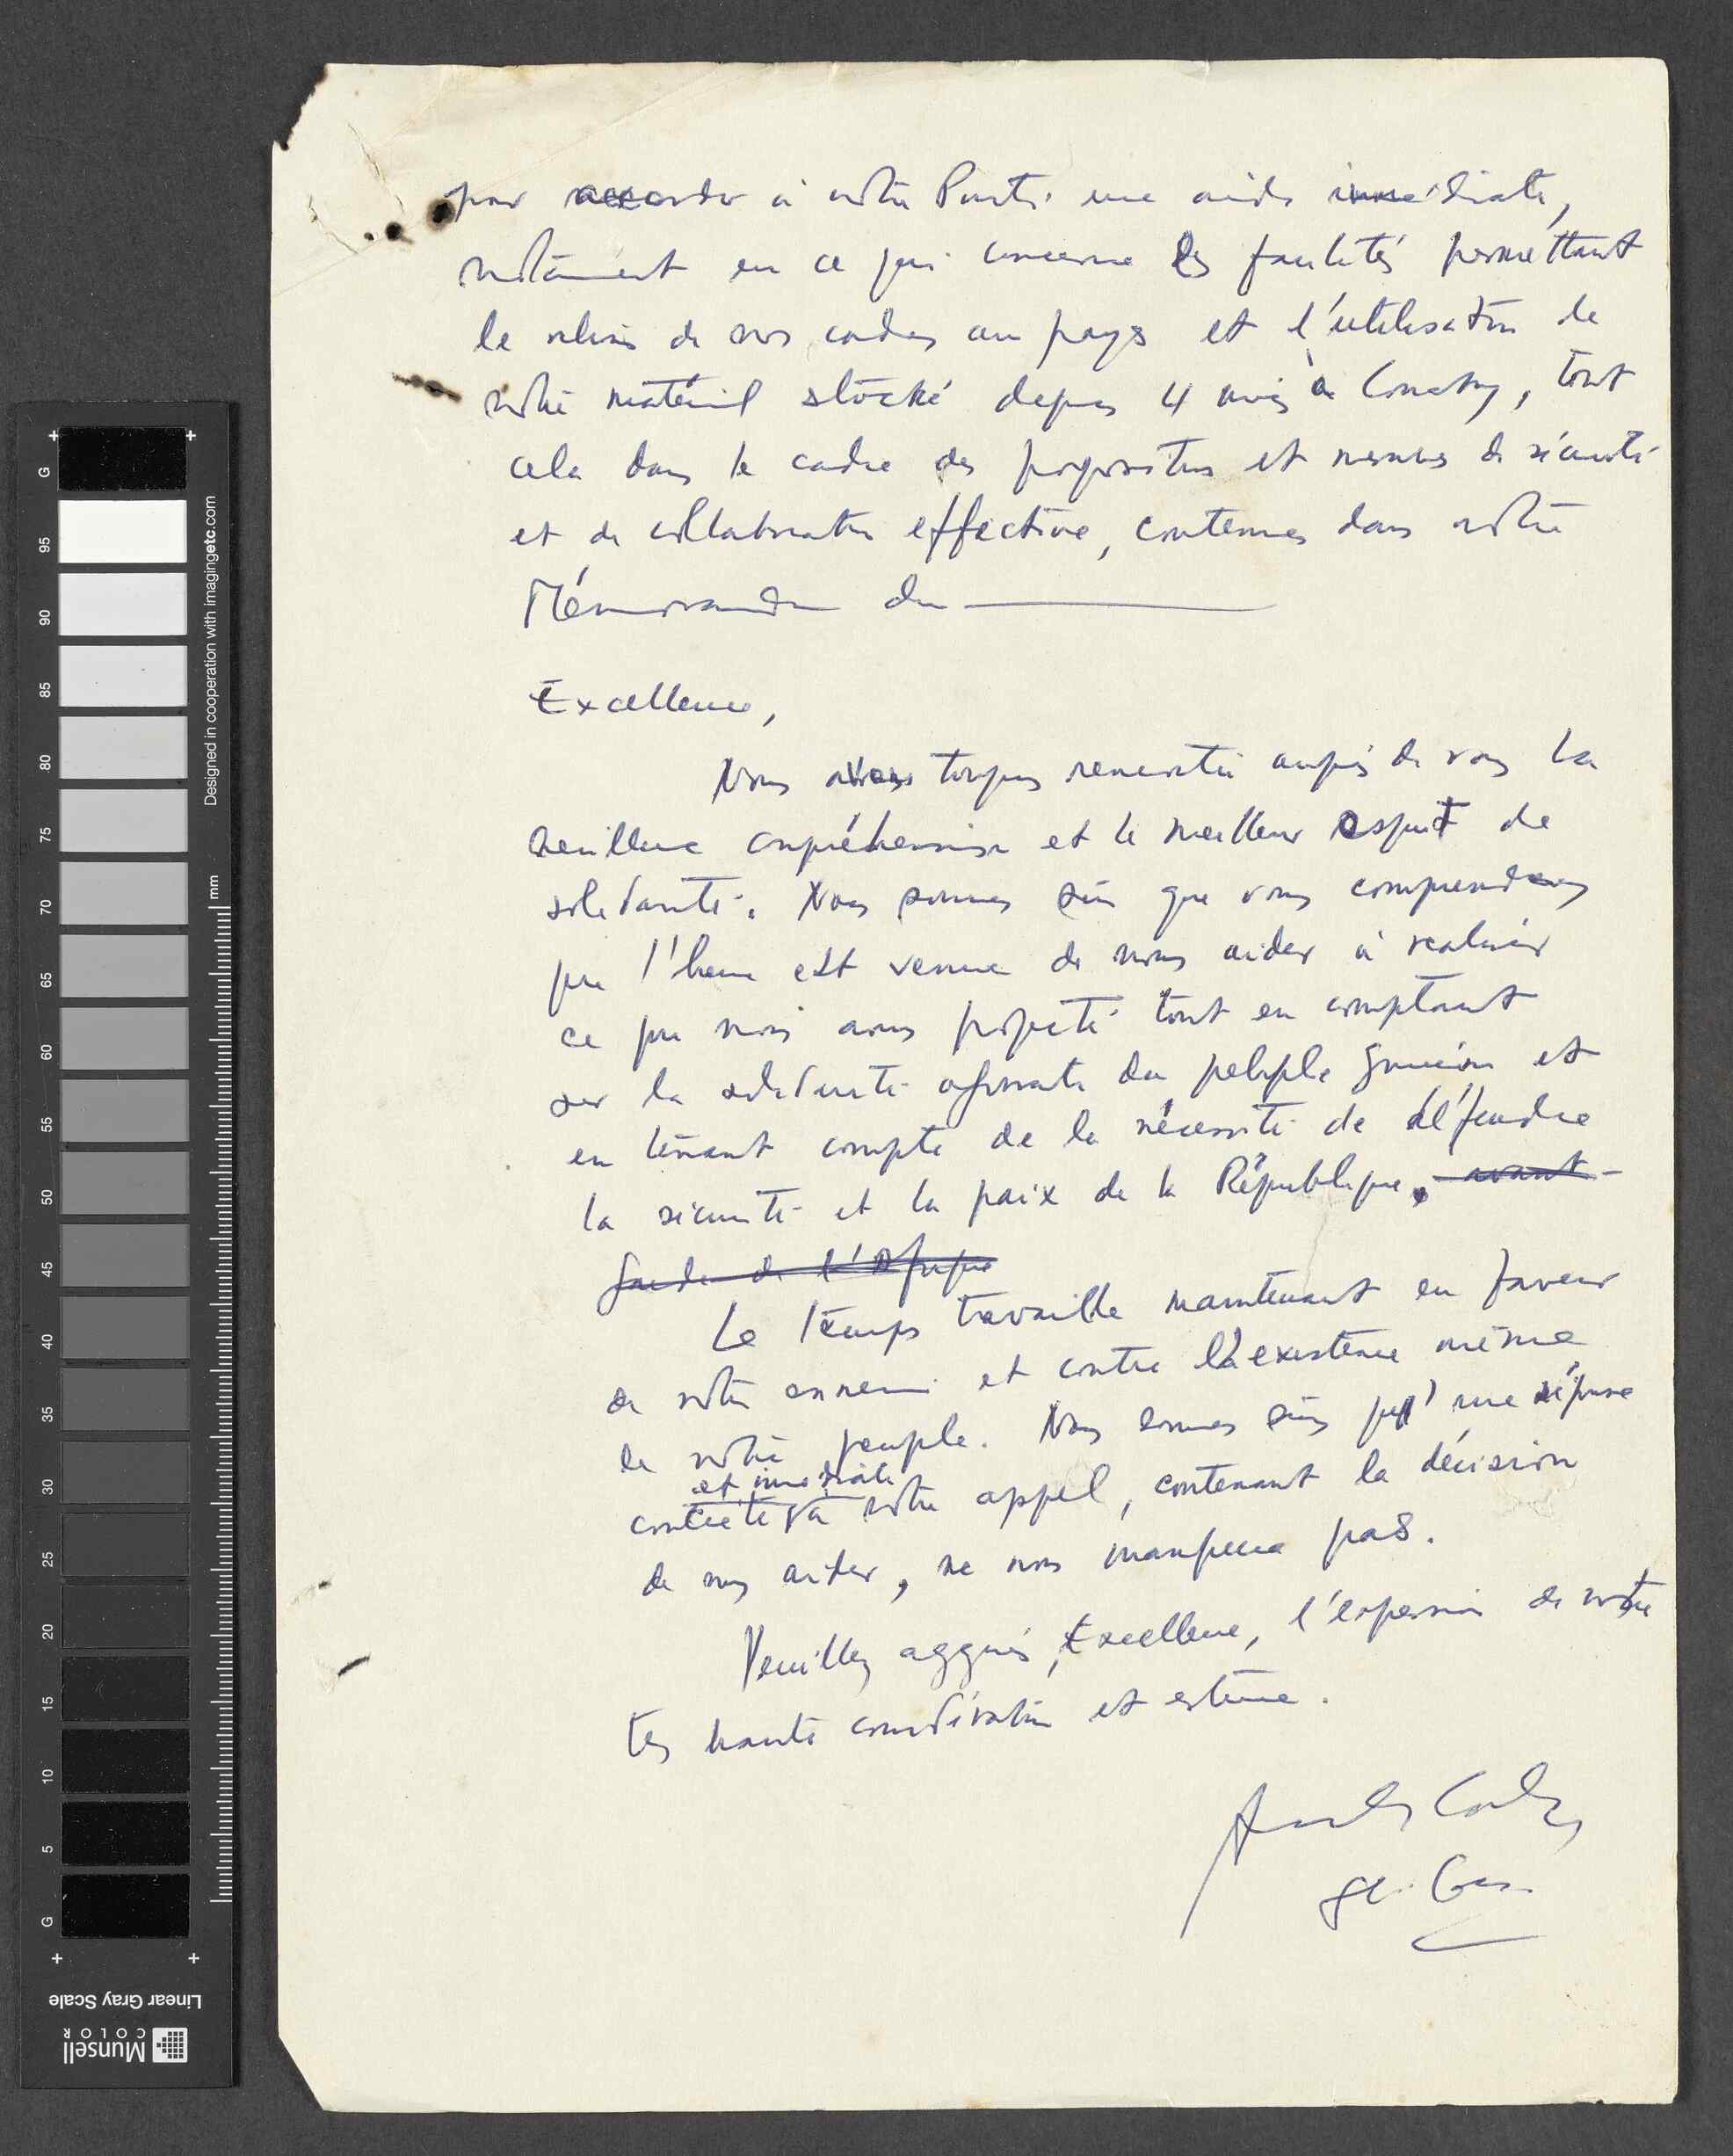 pour accorder à notre Parti une aide immédiate,
notamment en ce qui concerne les facilités permettant
le retour de nos cadres au pays et l'utilisation de
notre matériel stocké depuis 4 mois à Conakry, tout
cela dans le cadre des propositions et mesures de sécurité
et de collaboration effective, contenues dans notre
Mémorandum du
Excellence,
Nous avons toujours rencontré auprès de vous la
meilleure compréhension et le meilleur esprit de
solidarité. Nous sommes sûrs que vous comprendrez
que l'heure est venue de nous aider à réaliser
ce que nous avons projeté tout en comptant
sur la solidarité agissante du peuple guinéen et
en tenant compte de la nécessité de défendre
la sécurité et la paix de la République, avant-
garde de l'Afrique
Le temps travaille maintenant en faveur
de notre ennemi et contre l'existence même
de notre peuple. Nous sommes sûrs qu'une réponse
et immédiate
concrète à notre appel, contenant la décision
de nous aider, ne nous manquera pas.
Veuillez aggréer, Excellence, l'expression de notre
très haute considération et estime.
G
95
90
85
80
75
70
65
60
55
50
45
40
35
30
25
20
15
10
5
G
mm
Designed in cooperation with imagingetc.com
Linear Gray Scale
Munsell
COLOR